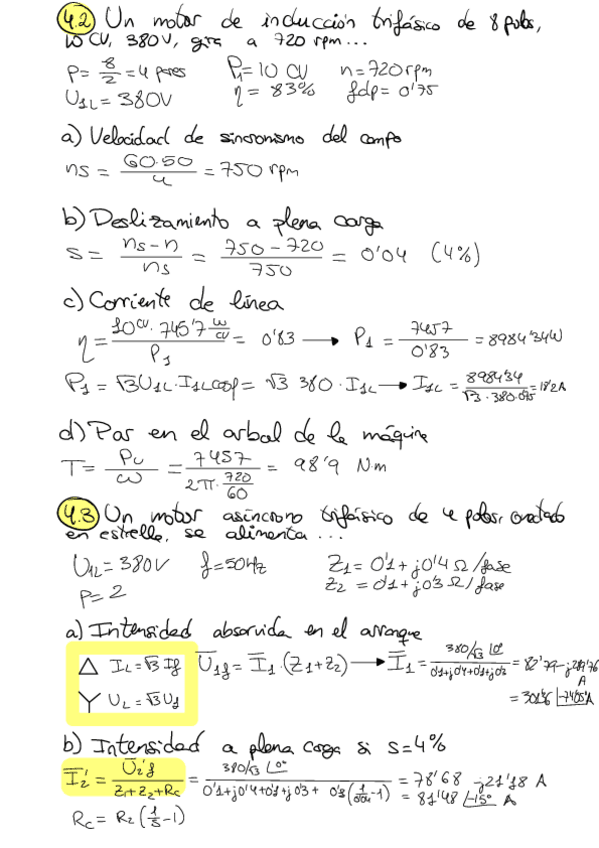 4.2 Un motor de inducción trifásico de 8 polos,
10 CV, 380V, gira a 720 rpm...
P = 8/2 = 4 pares P₁ = 10 CV n = 720 rpm
U1L = 380V η = 83% fdp = 0'75
a) Velocidad de sincronismo del campo
ns = 60·50/4 = 750 rpm
b) Deslizamiento a plena carga
s = ns-n/ns = 750-720/750 = 0'04 (4%)
c) Corriente de línea
η = 10CV·745'7 W/CV/P1 = 0'83 → P1 = 7457/0'83 = 8984'34W
P1 = √3 U1L·I1L cosφ = √3 380·I1L → I1L = 8984'34/√3·380·0'75 = 18'2A
d) Par en el arbol de la máquina
T = Pu/ω = 7457/2π·720/60 = 98'9 N·m
4.3 Un motor asíncrono trifásico de 4 polos, conectado
en estrella, se alimenta ...
U1L = 380V f = 50Hz Z1 = 0'1 + j0'4 Ω/fase
Z2 = 0'1 + j0'3 Ω/fase
P = 2
a) Intensidad absorvida en el arranque
△ IL = √3 If U1f = I1·(Z1+Z2) → I1 = 380/√3 |0°/0'1+j0'4+0'1+j0'3 =
Y UL = √3 Uf
A
b) Intensidad a plena carga si s=4%
I2' = U2'f/Z1+Z2+Rc = 380/√3 |0°/0'1+j0'4+0'1+j0'3+0'3(1/0'04-1) = 78'68 -j21'18 A
= 81'48 |-15° A
Rc = R2(1/s-1)